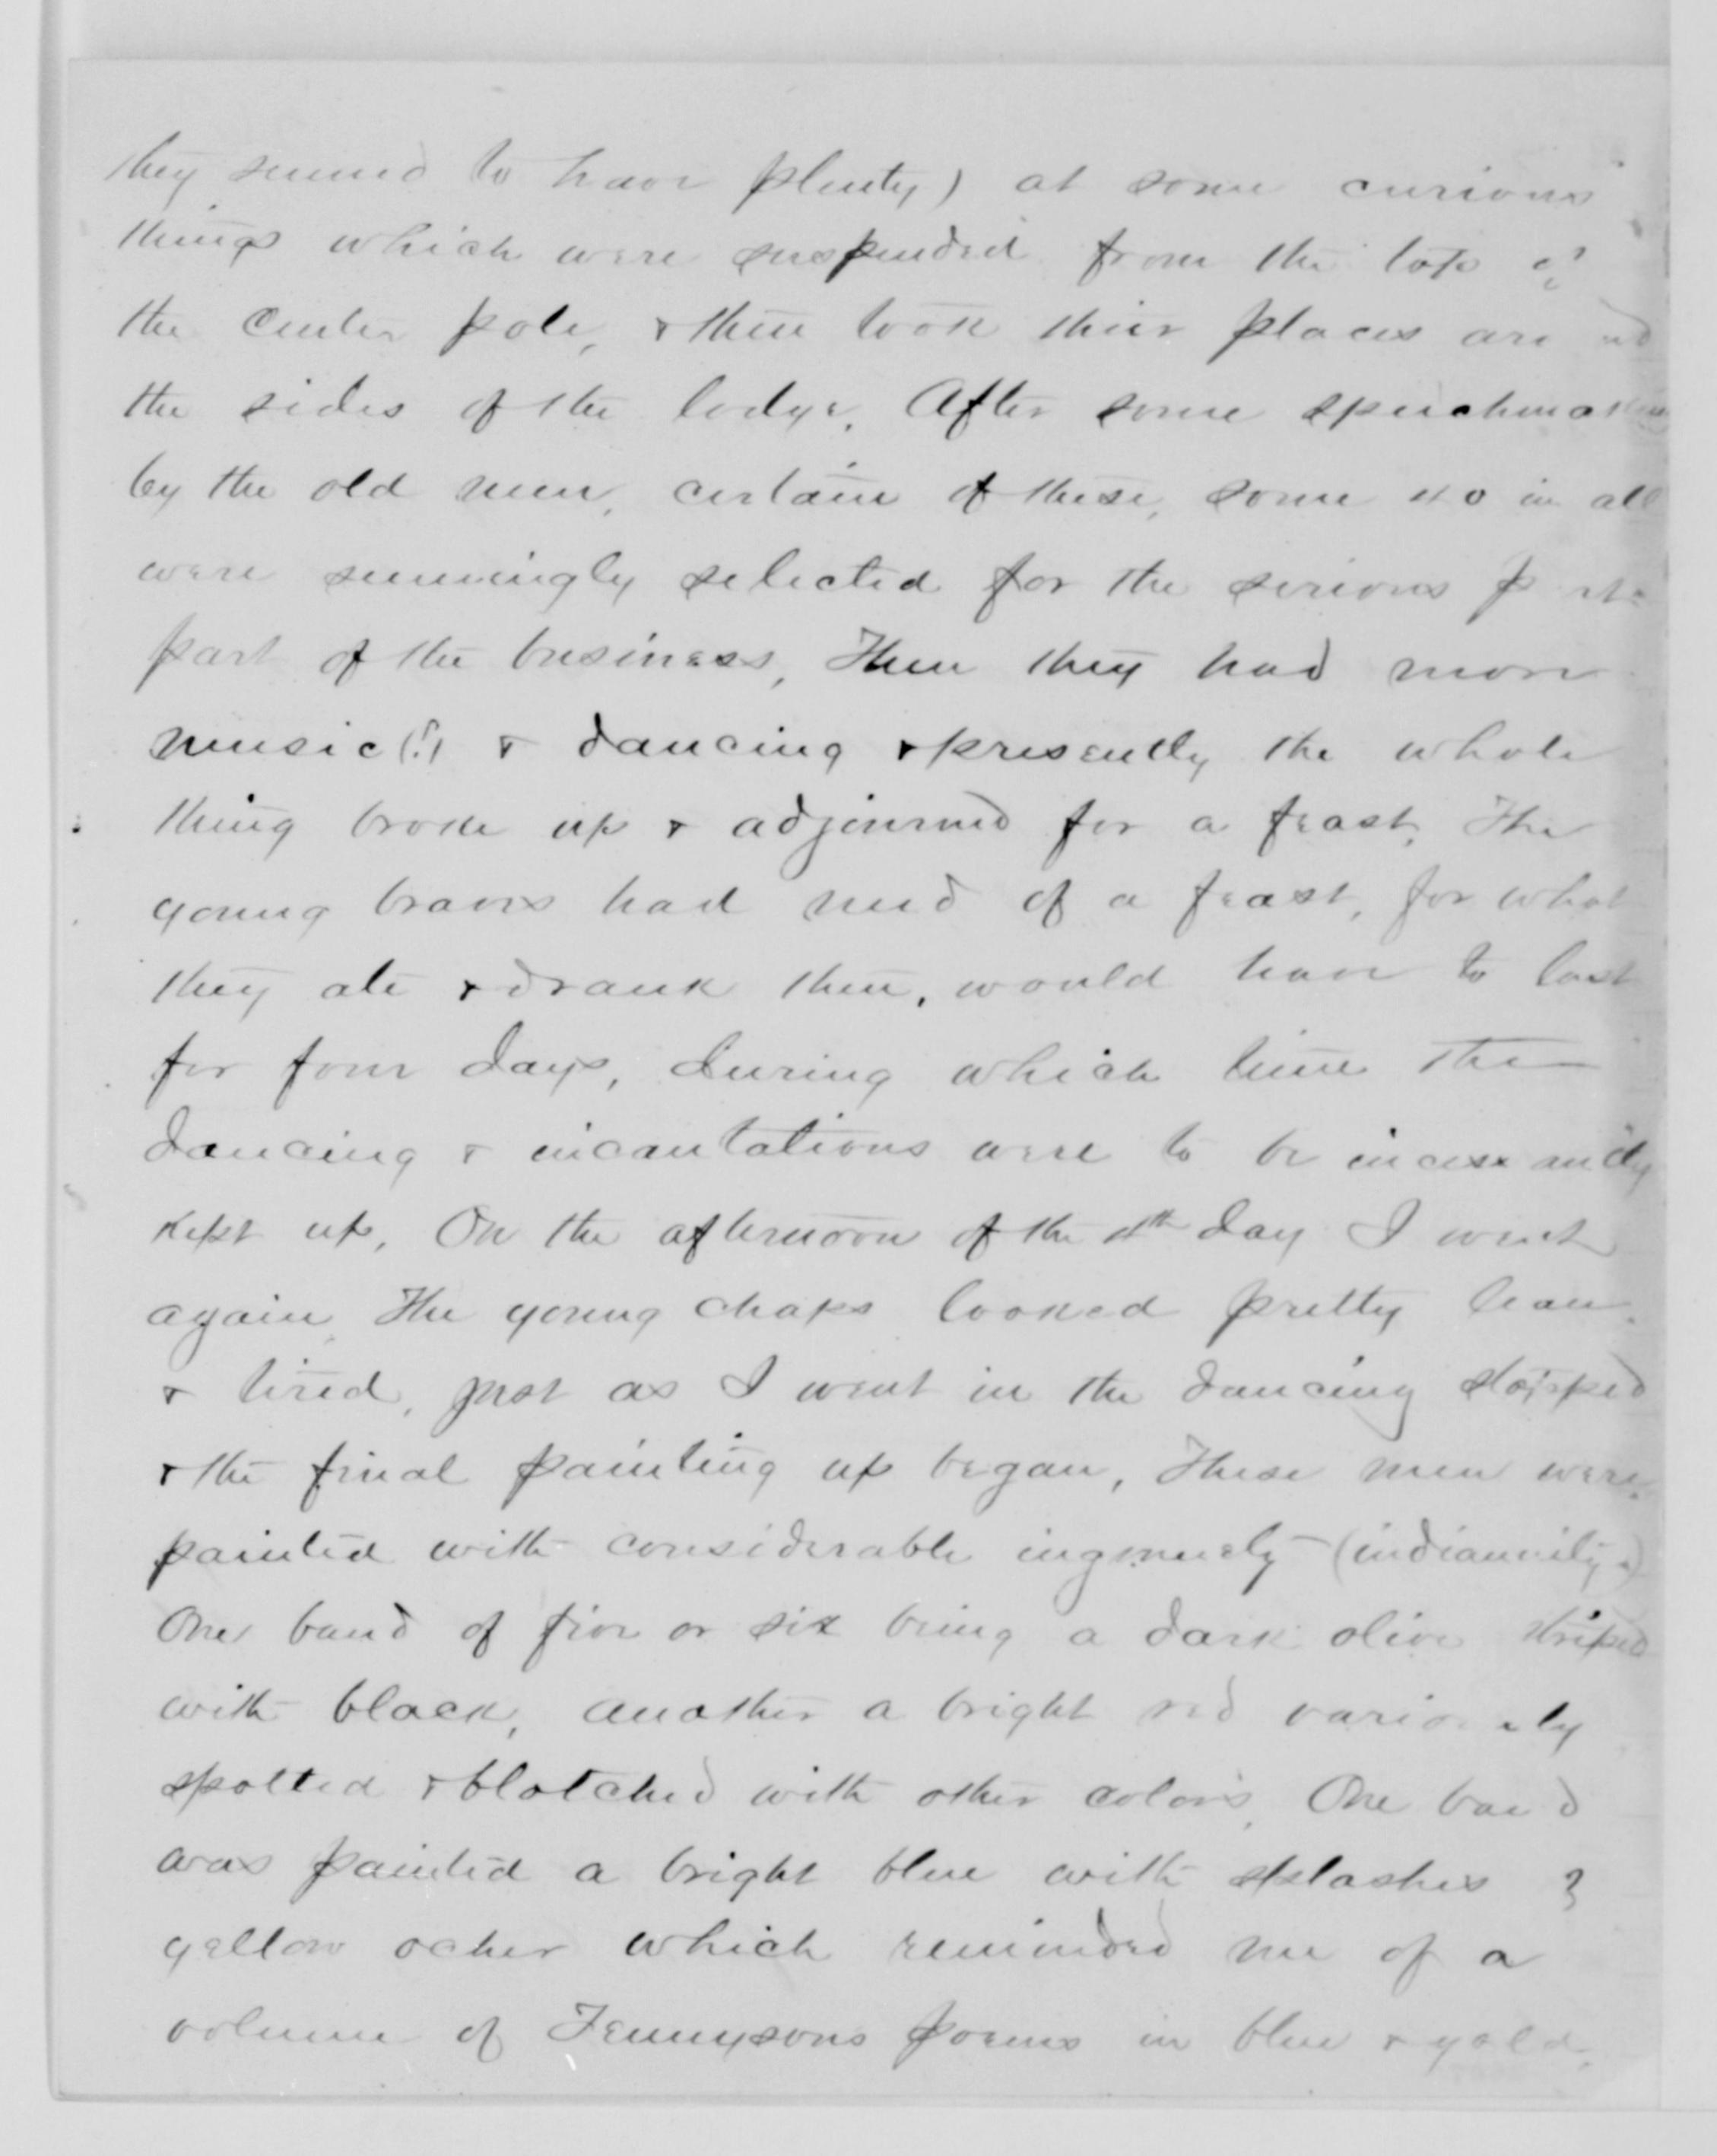 they seemed to have plenty) at some curious
things which were suspended from the top of
the center pole, & then took thier places around
the sides of the lodge. After some speechmaking
by the old men, certain of these, some 40 in all
were seemingly selected for the serious
part of the business, Then they had more
music(?) & dancing & presently the whole
thing broke up & adjourned for a feast. The
young braves had need of a feast, for what
they ate & drank then, would have to last
for four days, during which time the
dancing & incantations were to be incessantly
kept up. On the afternoon of the 4th day I went
again. The young chaps looked pretty lean
& tired, just as I went in the dancing stopped
& the final painting up began, These men were
painted with considerable ingenuety (indianuity)
One band of five or six being a dark olive striped
with black, another a bright red variously
spotted & blotched with other colors. One band
was painted a bright blue with splashes of
yellow ocher which reminded me of a
volume of Tennysons poems in blue & gold.